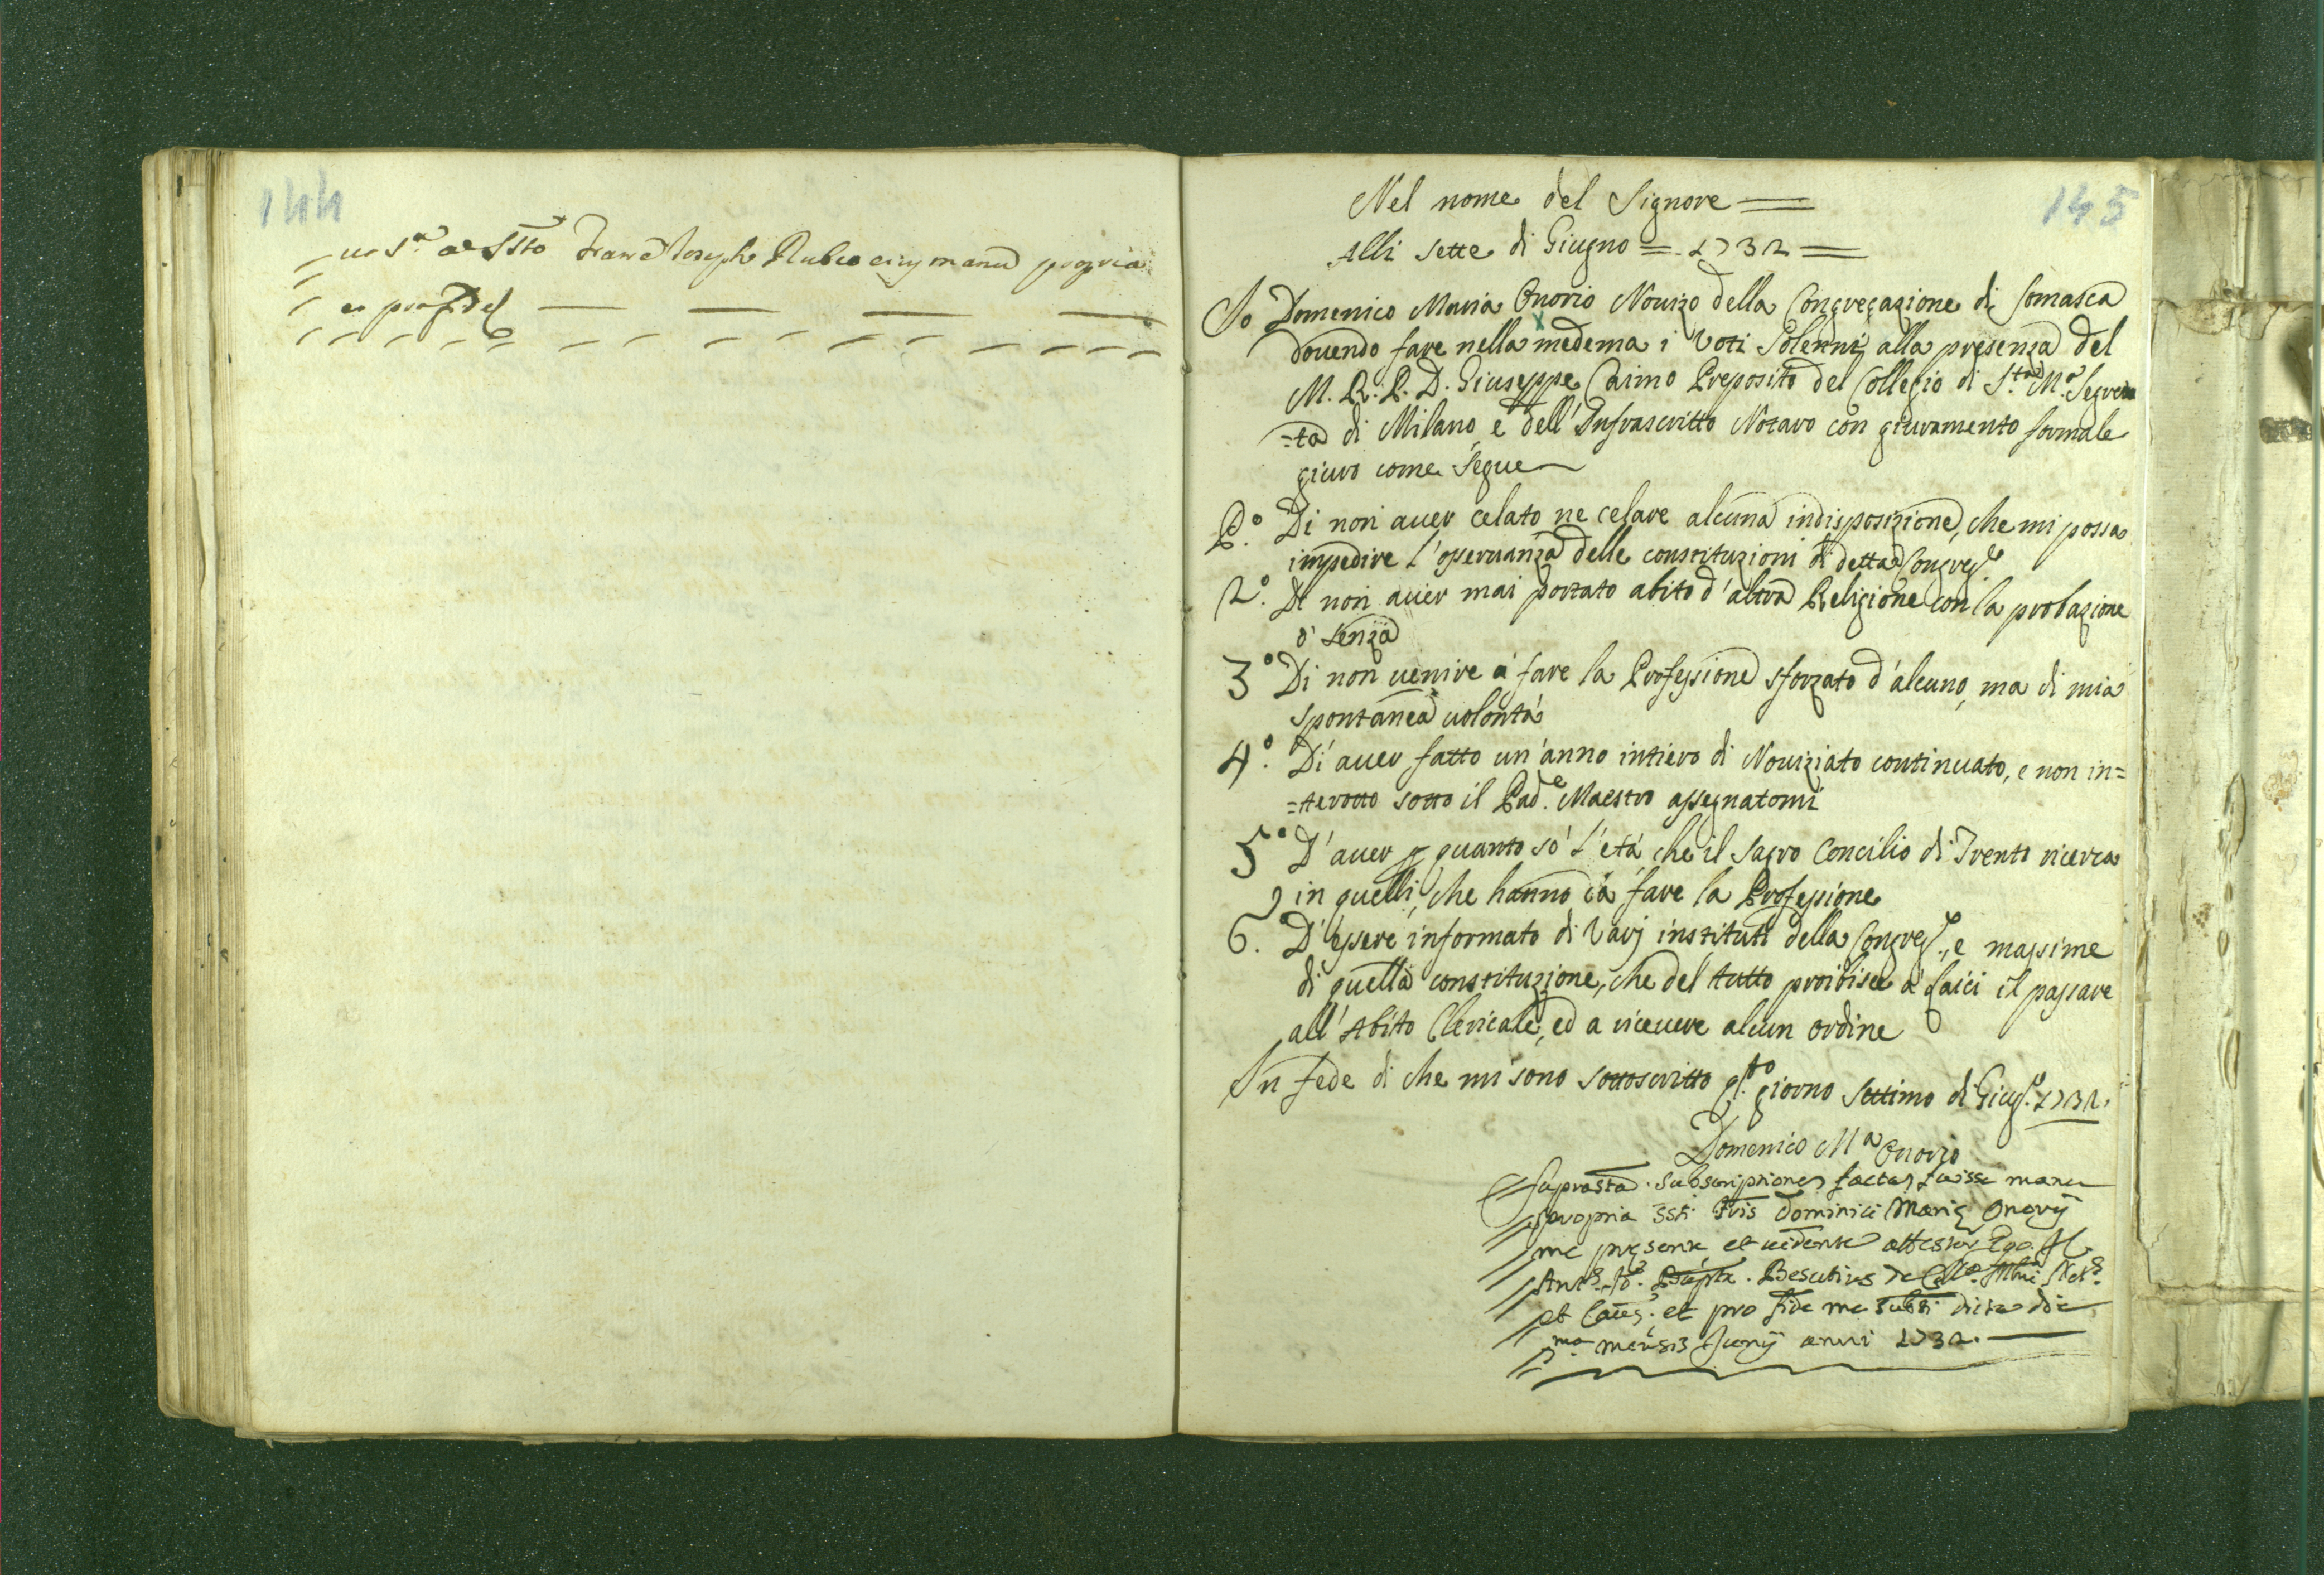 144
145
manu propria
Nel nome del Signore =
Alli sette di Giugno = 1732 =
Io Domenico Maria Onorio Novizo della Congregazione di Somasca
dovendo fare nella medema i Voti Solenni alla presenza del
M. R. P. D. Giuseppe Caimo Preposito del Collegio di S.ta M.a Segre
=ta di Milano, e dell'Infrascritto Notaro con giuramento formale
giuro come segue
P.o Di non aver celato ne celare alcuna indisposizione, che mi possa
impedire l'osservanza delle constituzioni di detta Congreg.e
2.o Di non aver mai portato abito d'altra Religione con la probazione
ò senza
3.o Di non venire à fare la Professione sforzato d'alcuno, ma di mia
spontanea volontà
4.o Di aver fatto un'anno intiero di Noviziato continuato, e non in=
=terotto sotto il Pad.e Maestro assegnatomi
5.o D'aver p quanto sò l'età, che il Sagro Concilio di Trento ricerca
in quelli, che hanno à fare la Professione
6. D'essere informato di varj instituti della Congreg.e, e massime
di quella constituzione, che del tutto proibisce à Laici il passare
all'Abito Clericale, ed a ricevere alcun ordine
In fede di che mi sono sottoscritto q.to giorno settimo di Giug.o 1732.
Domenico M.a Onorio
Suprasta subscriptiones factas fuisse manu
propria Ssti Fris Dominici Marię Onorij
me pręsente, et vidente attestor Ego
Besutius de
et pro fide me subsi dicta die
7.ma mensis Junij anni 1732.